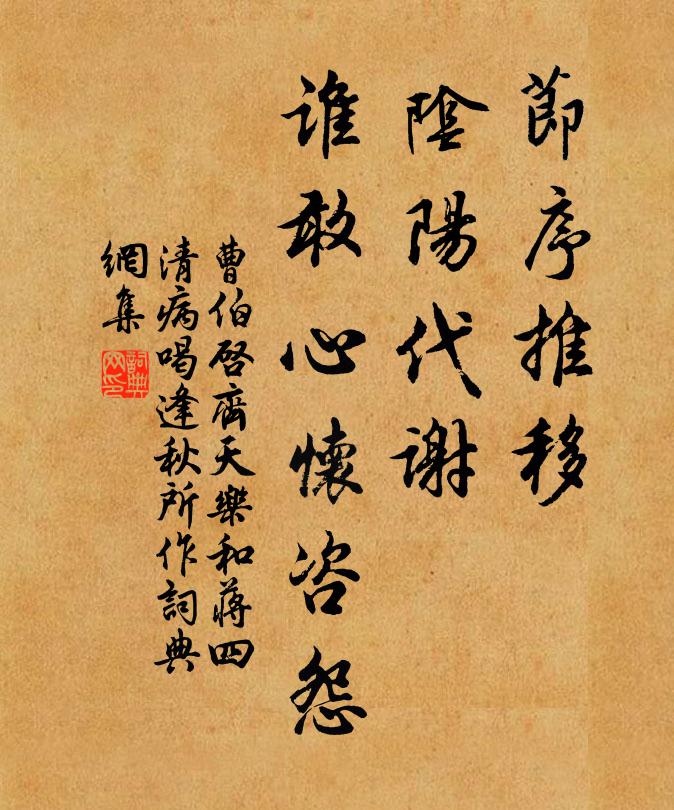 節序推移
陰陽代謝
誰敢心懷咨怨
曹伯啓齊天樂和蔣四
清病喝逢秋所作詞典
網集
詞典
网印